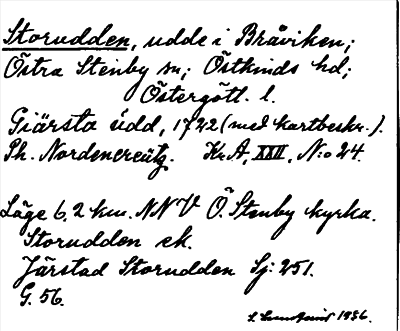 Storudden, udde i Bråviken;
Östra Stenby sn; Östkinds hd;
Östergötl. l.
Giärsta údd, 1722 (med kartbeskr.).
Ph. Nordencreütz. Kr. A, XXII, N:o 24.
Läge 6,2 km. NNV Ö. Stenby kyrka.
Storudden ek.
Järstad Storudden Sj: 251.
G. 56.
1936.